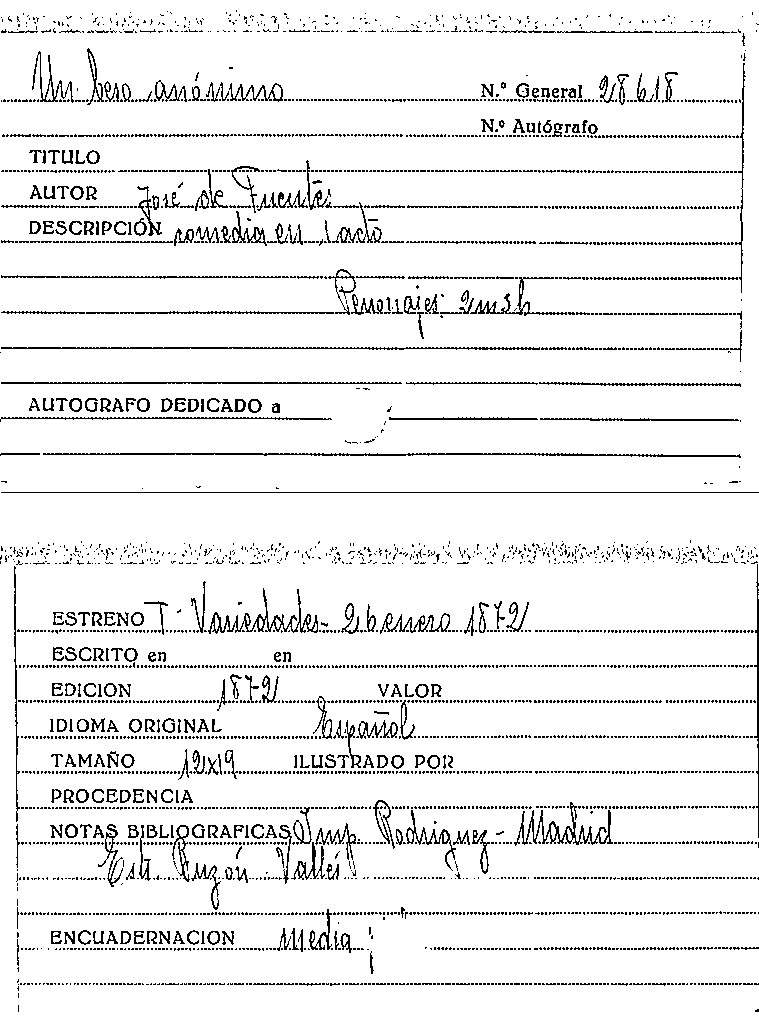 Un beso anónimo N.º General 28618
N.º Autógrafo
TITULO
AUTOR José de Fuentes
DESCRIPCIÓN comedia en 1 acto
Personajes: 2m3h
AUTOGRAFO DEDICADO a
ESTRENO T. Variedades - 26 enero 1872
ESCRITO en en
EDICION 1872 VALOR
IDIOMA ORIGINAL Español
TAMAÑO 12x19 ILUSTRADO POR
PROCEDENCIA
NOTAS BIBLIOGRAFICAS Imp. Rodriguez - Madrid
Estr. Vallés
ENCUADERNACION media